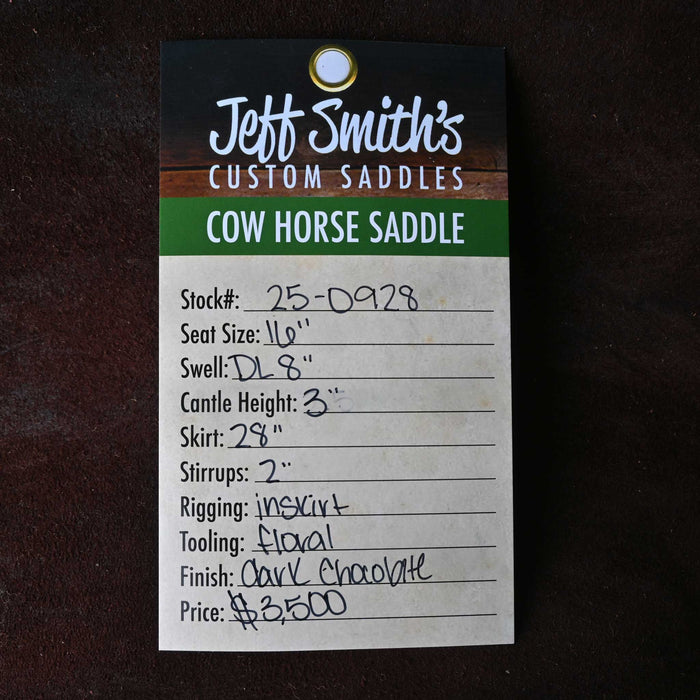 Jeff Smith's
CUSTOM SADDLES
COW HORSE SADDLE
Stock#: 25-0928
Seat Size: 16"
Swell: DL 8"
Cantle Height: 3"
Skirt: 28"
Stirrups: 2"
Rigging: inskirt
Tooling: floral
Finish: dark Chaoblte
Price: $3,500